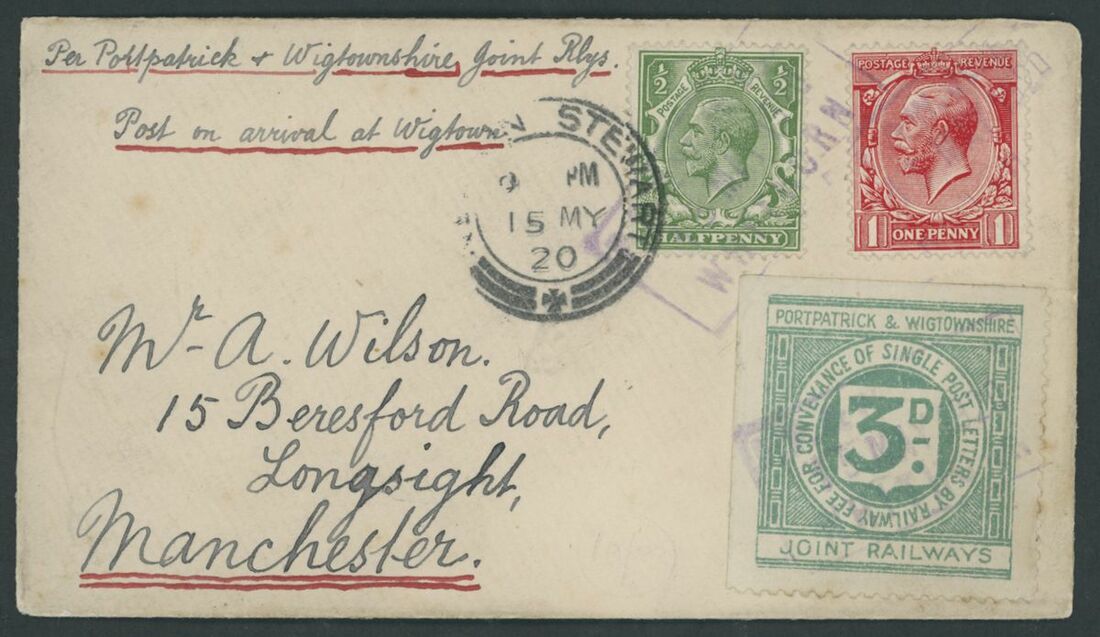 Per Portpatrick + Wigtownshire Joint Rlys.
Post on arrival at Wigtown
½ ½
POSTAGE REVENUE
HALFPENNY
POSTAGE REVENUE
1 ONE PENNY 1
STEWART
PM
15 MY
20
PORTPATRICK & WIGTOWNSHIRE
FEE FOR CONVEYANCE OF SINGLE POST LETTERS BY RAILWAY
3D.
JOINT RAILWAYS
Mr A. Wilson.
15 Beresford Road,
Longsight,
Manchester.